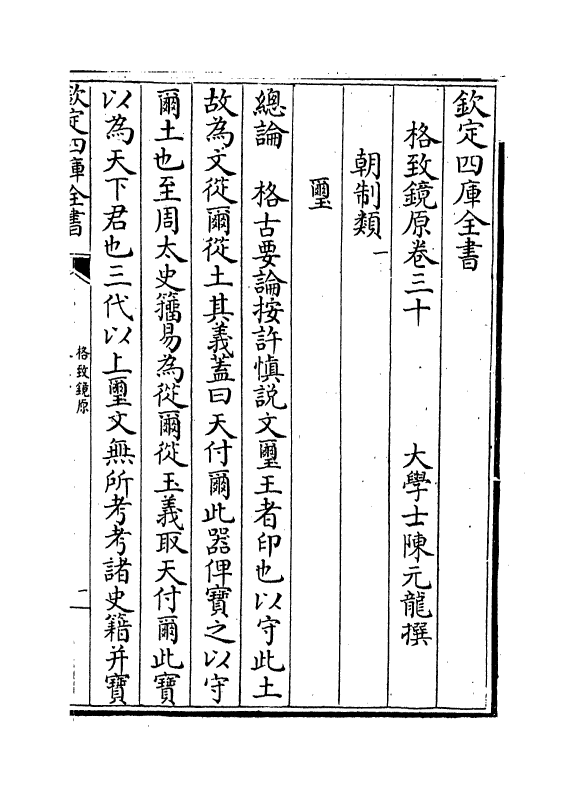 欽定四庫全書
格致鏡原卷三十　　大學士陳元龍撰
朝制類一
璽
總論　格古要論按許慎説文璽王者印也以守此土
故為文從爾從土其義蓋曰天付爾此器俾寶之以守
爾土也至周太史籀易為從爾從玉義取天付爾此寶
以為天下君也三代以上璽文無所考考諸史籍并寶
欽定四庫全書
格致鏡原